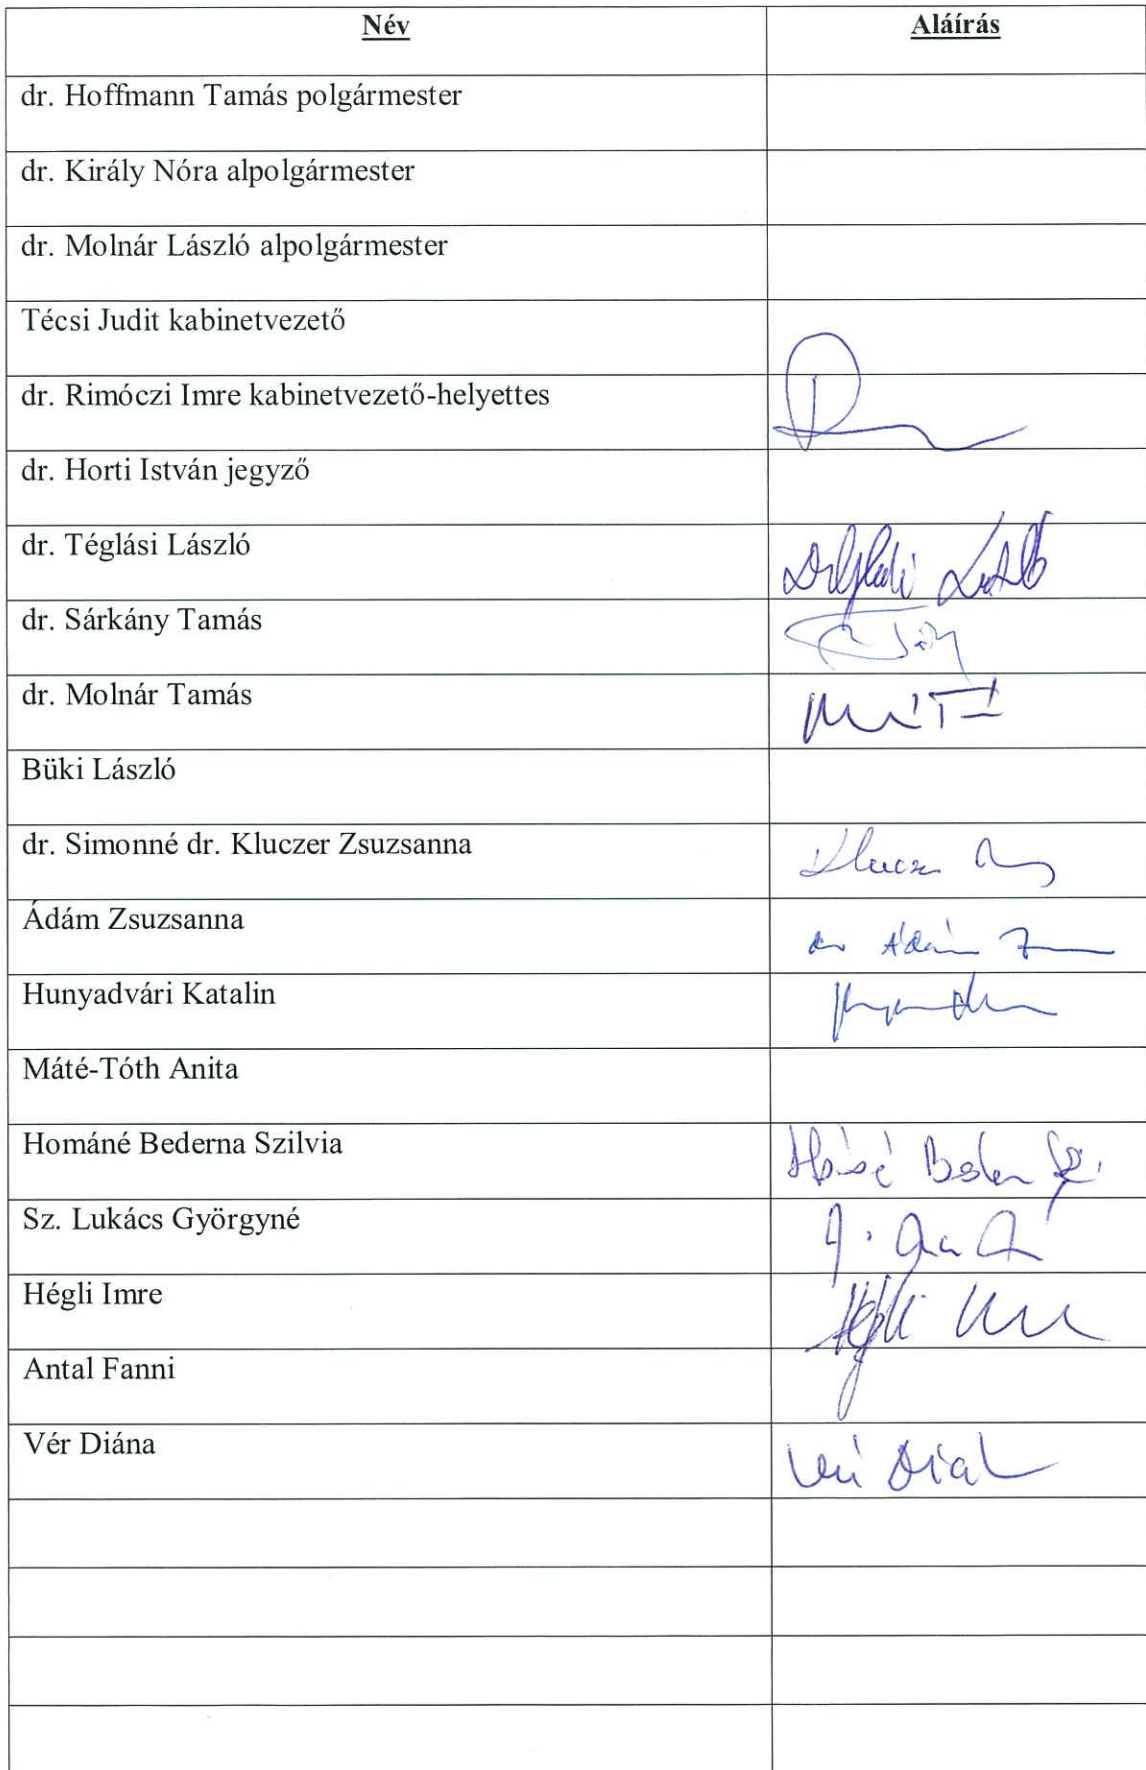 Név Aláírás
dr. Hoffmann Tamás polgármester
dr. Király Nóra alpolgármester
dr. Molnár László alpolgármester
Técsi Judit kabinetvezető
dr. Rimóczi Imre kabinetvezető-helyettes
dr. Horti István jegyző
dr. Téglási László
dr. Sárkány Tamás
dr. Molnár Tamás
Büki László
dr. Simonné dr. Kluczer Zsuzsanna
Ádám Zsuzsanna
Hunyadvári Katalin
Máté-Tóth Anita
Hománé Bederna Szilvia
Sz. Lukács Györgyné
Hégli Imre
Antal Fanni
Vér Diána